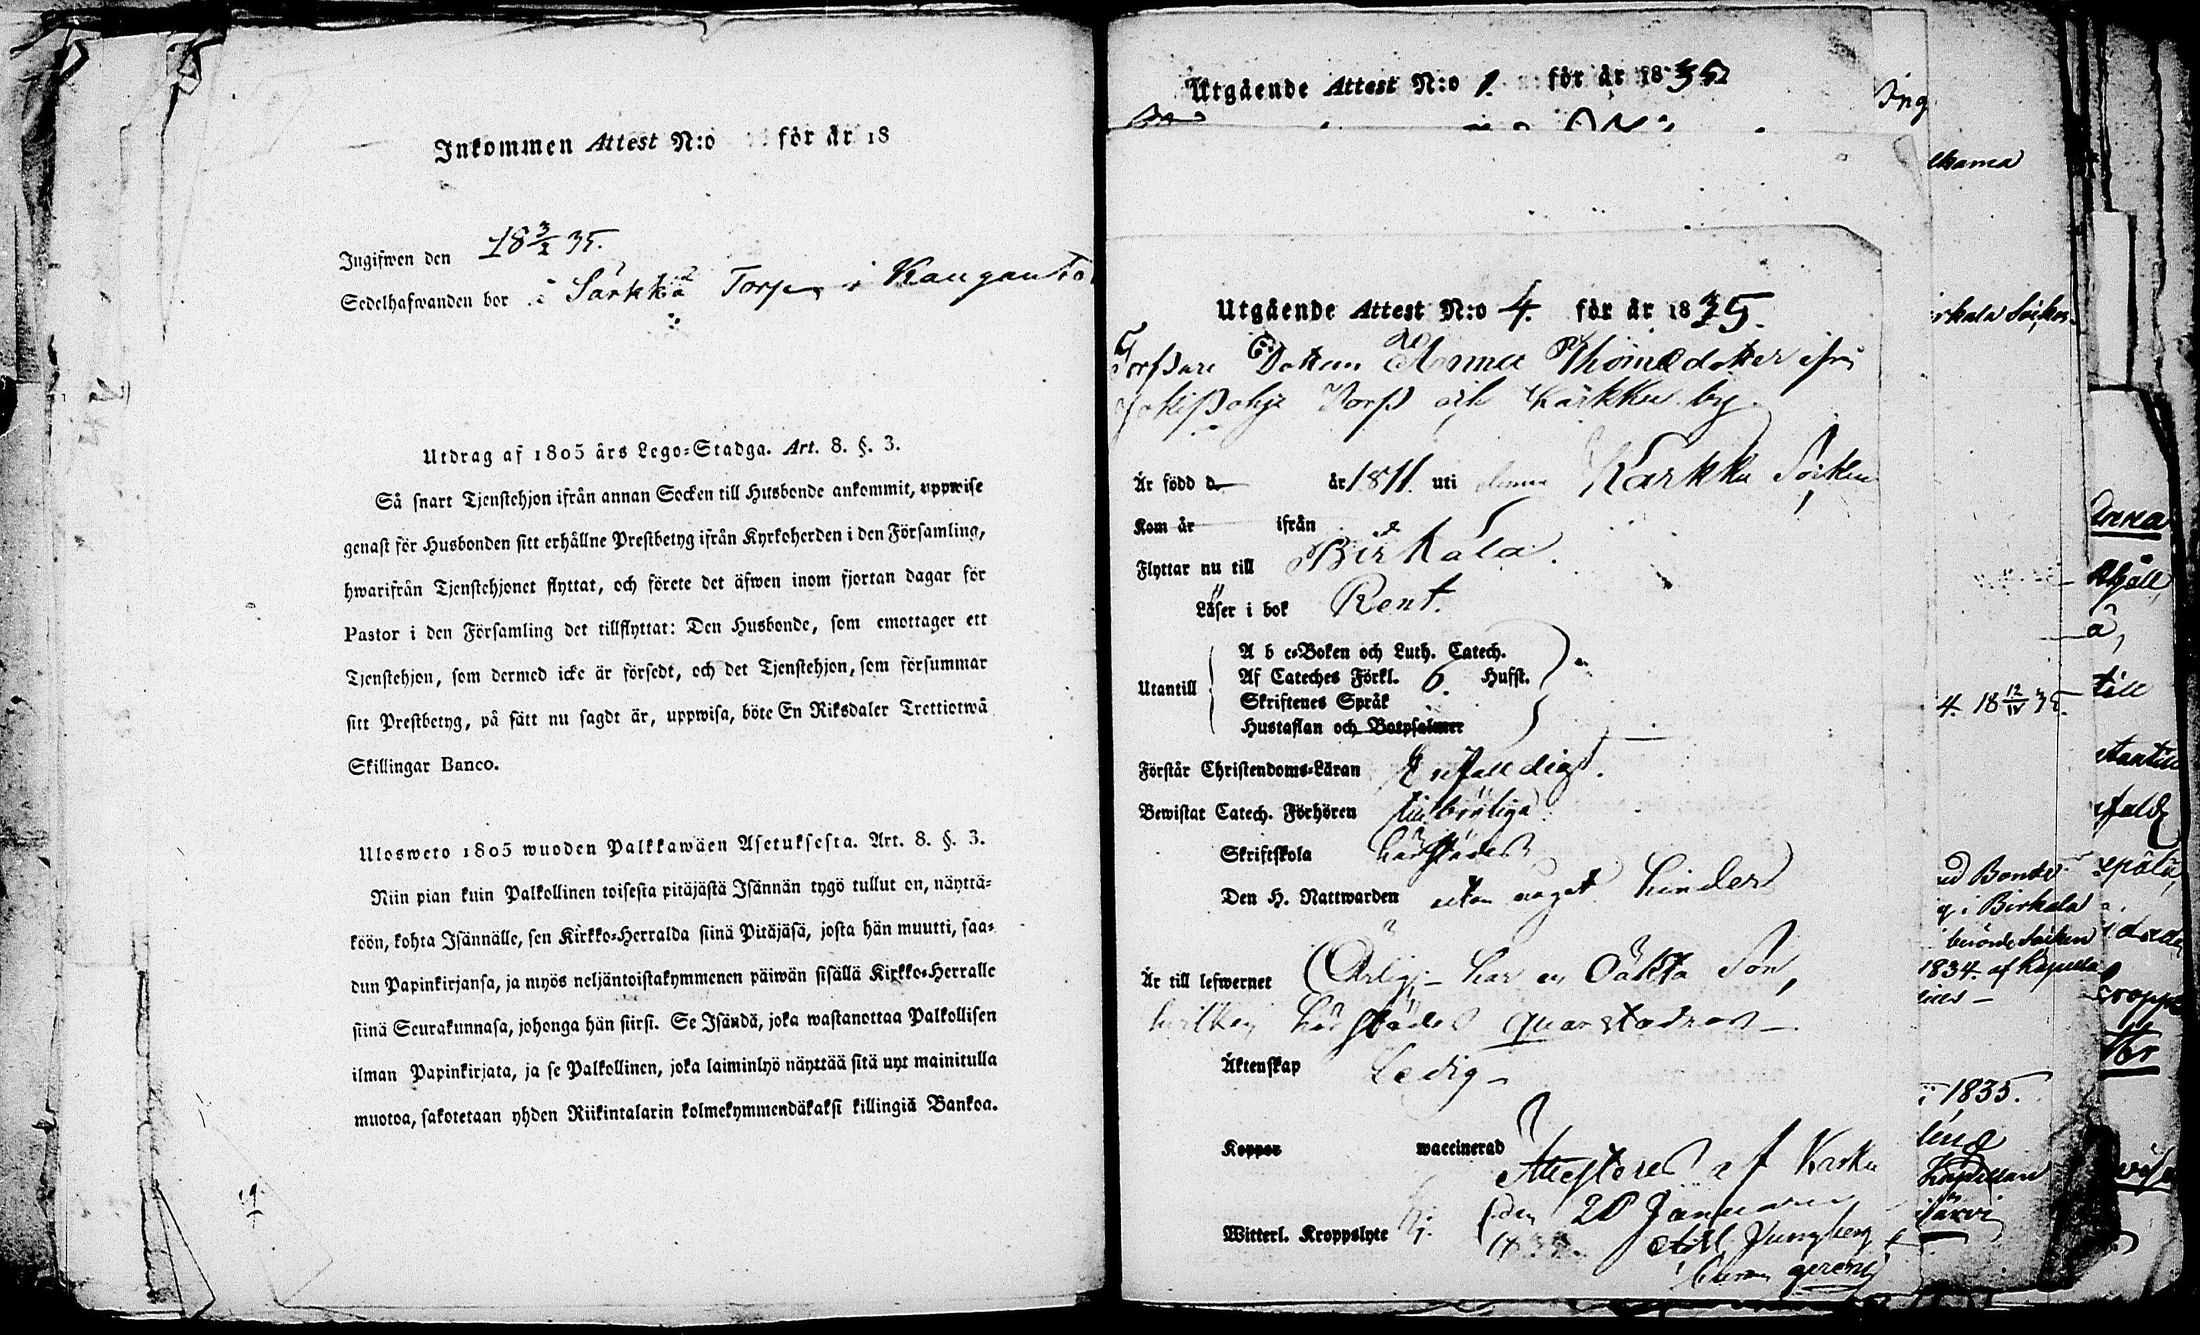 Inkommen Attest N:o för år 18
Ingifwen den 18 3/2 35.
Sedelhafwanden bor i Särkkä Torp i Kangan
Utdrag af 1805 års Lego-Stadga. Art. 8. §. 3.
Så snart Tjenstehjon ifrån annan Socken till Husbonde ankommit, uppwise
genast för Husbonden sitt erhållne Prestbetyg ifrån Kyrkoherden i den Församling,
hwarifrån Tjenstehjonet flyttat, och förete det äfwen inom fjortan dagar för
Pastor i den Församling det tillflyttat: Den Husbonde, som emottager ett
Tjenstehjon, som dermed icke är försedt, och det Tjenstehjon, som försummar
sitt Prestbetyg, på sätt nu sagdt är, uppwisa, böte En Riksdaler Trettiotwå
Skillingar Banco.
Ulosweto 1805 wuoden Palkkawäen Asetuksesta. Art. 8. §. 3.
Niin pian kuin Palkollinen toisesta pitäjästä Isännän tygö tullut on, näyttä-
köön, kohta Isännälle, sen Kirkko-Herralda siinä Pitäjäsä, josta hän muutti, saa-
dun Papinkirjansa, ja myös neljäntoistakymmenen päiwän sisällä Kirkko-Herralle
siinä Seurakunnasa, johonga hän siirsi. Se Isändä, joka wastanottaa Palkollisen
ilman Papinkirjata, ja se Palkollinen, joka laiminlyö näyttää sitä nyt mainitulla
muotoa, sakotetaan yhden Riikintalarin kolmekymmendäkaksi killingiä Bankoa.
Utgående Attest N:o 1. för år 1835
Utgående Attest N:o 4. för år 1835.
Torpare Dottern Anna Thomædotter ifrån
Torp och Karkku by.
Är född d år 1811. uti denna Karkku Socken
Kom år ifrån
Flyttar nu till Birkala.
Läser i bok Rent.
Utantill
A b c-Boken och Luth. Catech.
Af Cateches Förkl. 6. Hufst.
Skriftenes Språk
Hustaflan och Botpsalmer
Förstår Christendoms-Läran Enfalldigt.
Bewistat Catech. Förhören tillbörliga
Skriftskola härstädes
Den H. Nattwarden utan något hinder
Är till lefwernet Ärlig, - har en Oäkta Son,
hvilken härstädes quarstadnar -
Äktenskap Ledig -
Koppor waccinerad
Attesteras af Karku
den 20 Januarii
Witterl. Kroppslyte
Ljungberg
Birkala
1835.
4. 18 12/IV 35.
ed Bonde
i Birkala
1834. af Capella
Anna
till